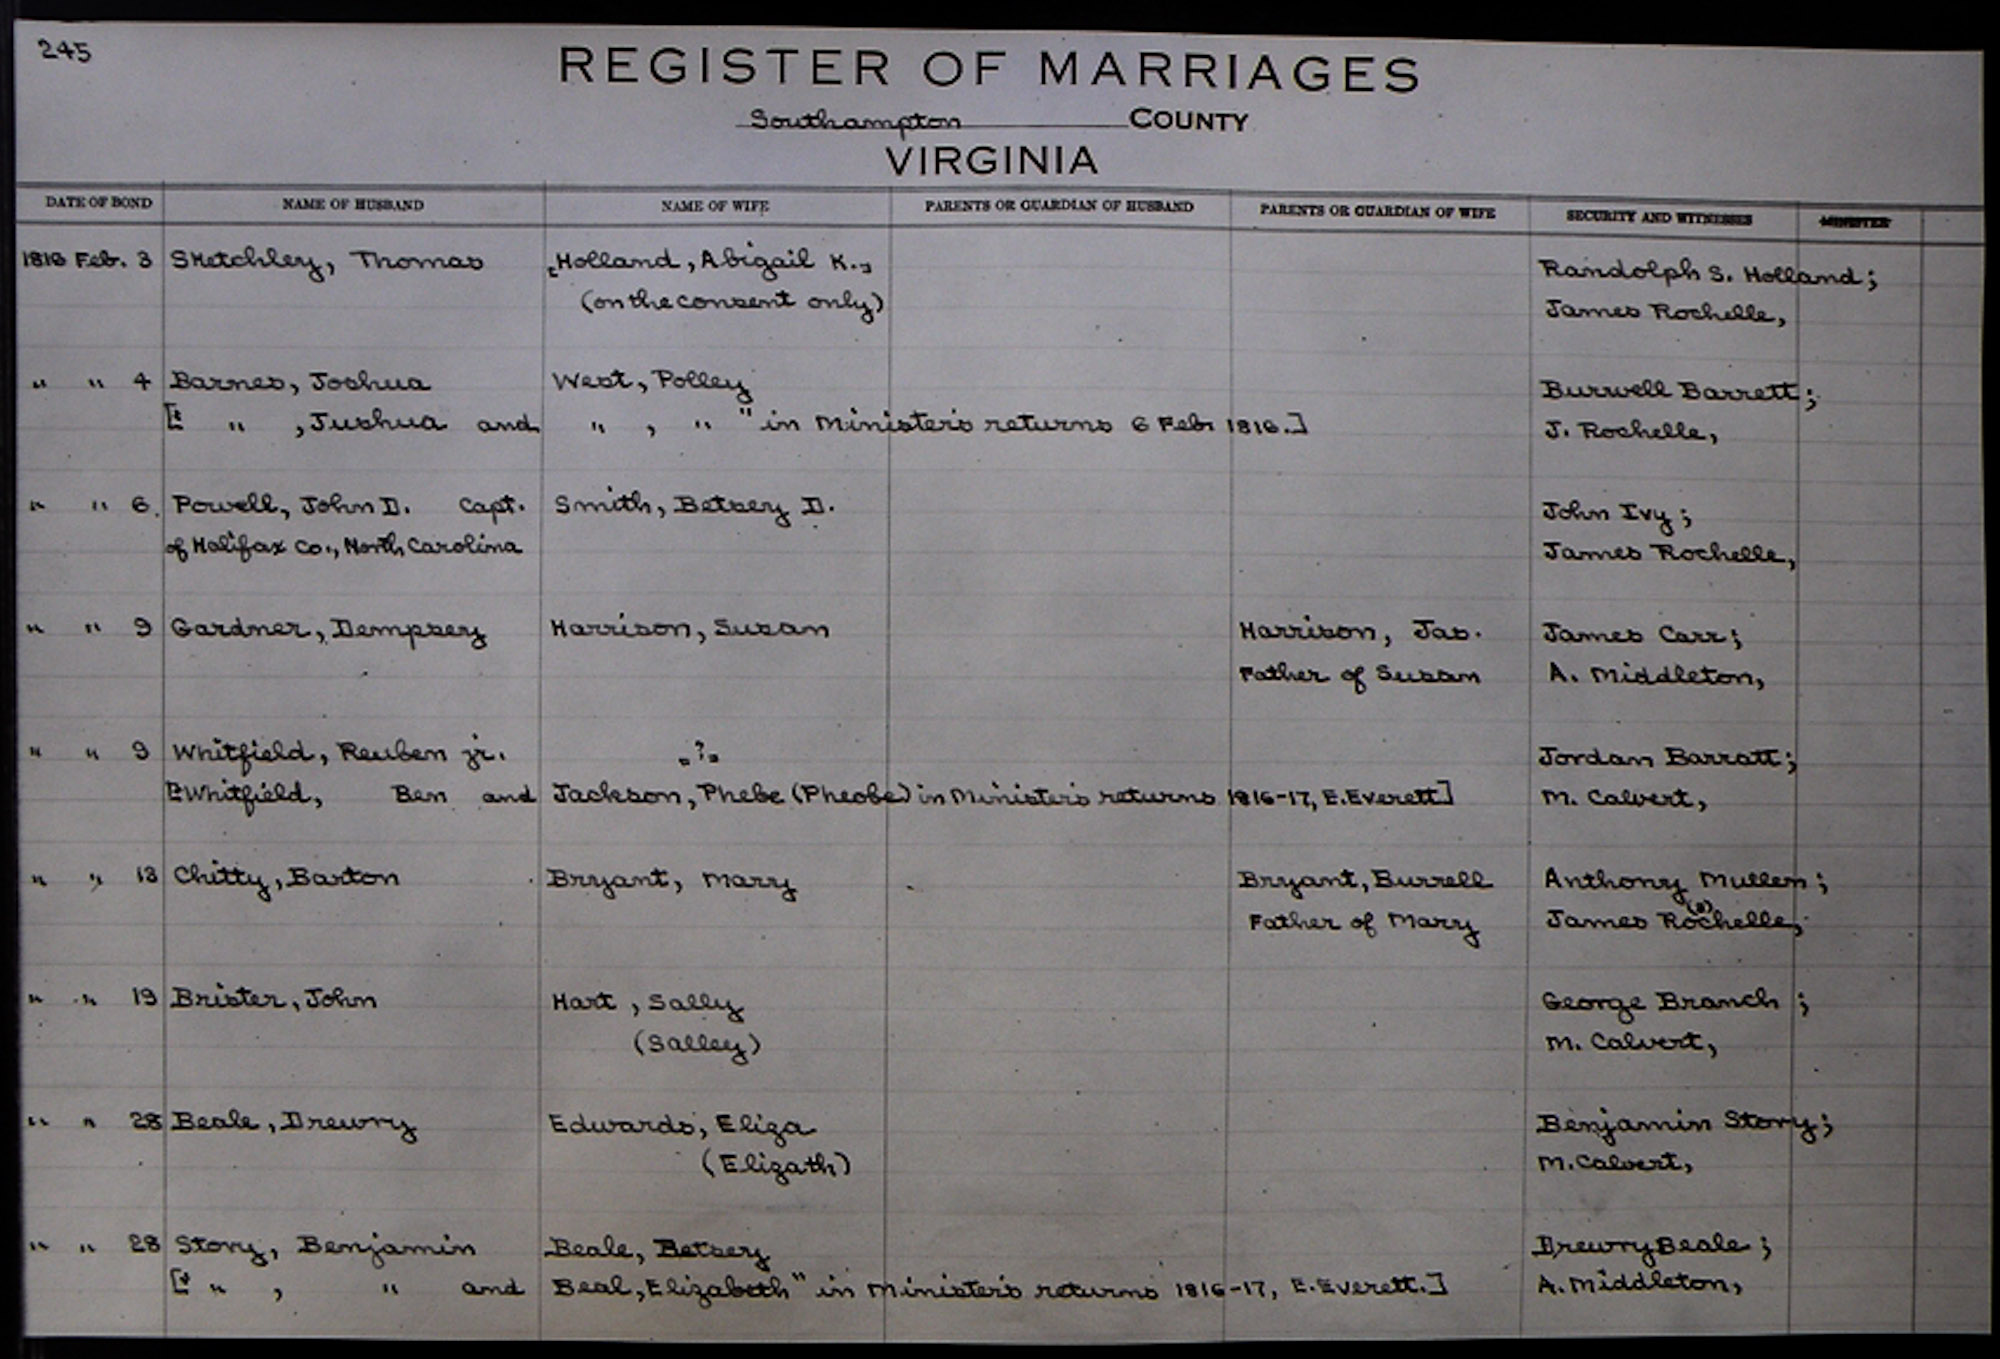 245
REGISTER OF MARRIAGES
Southampton COUNTY
VIRGINIA
DATE OF BOND NAME OF HUSBAND NAME OF WIFE PARENTS OR GUARDIAN OF HUSBAND PARENTS OR GUARDIAN OF WIFE SECURITY AND WITNESSES MINISTER
1816 Feb. 3 Sketchley, Thomas [Holland, Abigail K.,] Randolph S. Holland;
(on the consent only) James Rochelle,
" " 4 Barnes, Joshua West, Polley Burwell Barrett;
[" " , Jushua and " , " " in Minister's returns 6 Feb. 1816.] J. Rochelle,
" " 6. Powell, John D. Capt. Smith, Betsey D. John Ivy;
of Halifax Co., North Carolina James Rochelle,
" " 9 Gardner, Dempsey Harrison, Susan Harrison, Jas. James Carr;
Father of Susan A. Middleton,
" " 9 Whitfield, Reuben jr. "?" Jordan Barratt;
["Whitfield, Ben and Jackson, Phebe (Pheobe) in Minister's returns 1816-17, E. Everett] M. Calvert,
" " 13 Chitty, Barton Bryant, Mary Bryant, Burrell Anthony Mullen;
Father of Mary James Rochelle, (s)
" " 19 Brister, John Hart, Sally George Branch;
(Salley) M. Calvert,
" " 28 Beale, Drewry Edwards, Eliza Benjamin Story;
(Elizath) M. Calvert,
" " 28 Story, Benjamin Beale, Betsey Drewry Beale;
[" " , " and Beal, Elizabeth" in Minister's returns 1816-17, E. Everett.] A. Middleton,